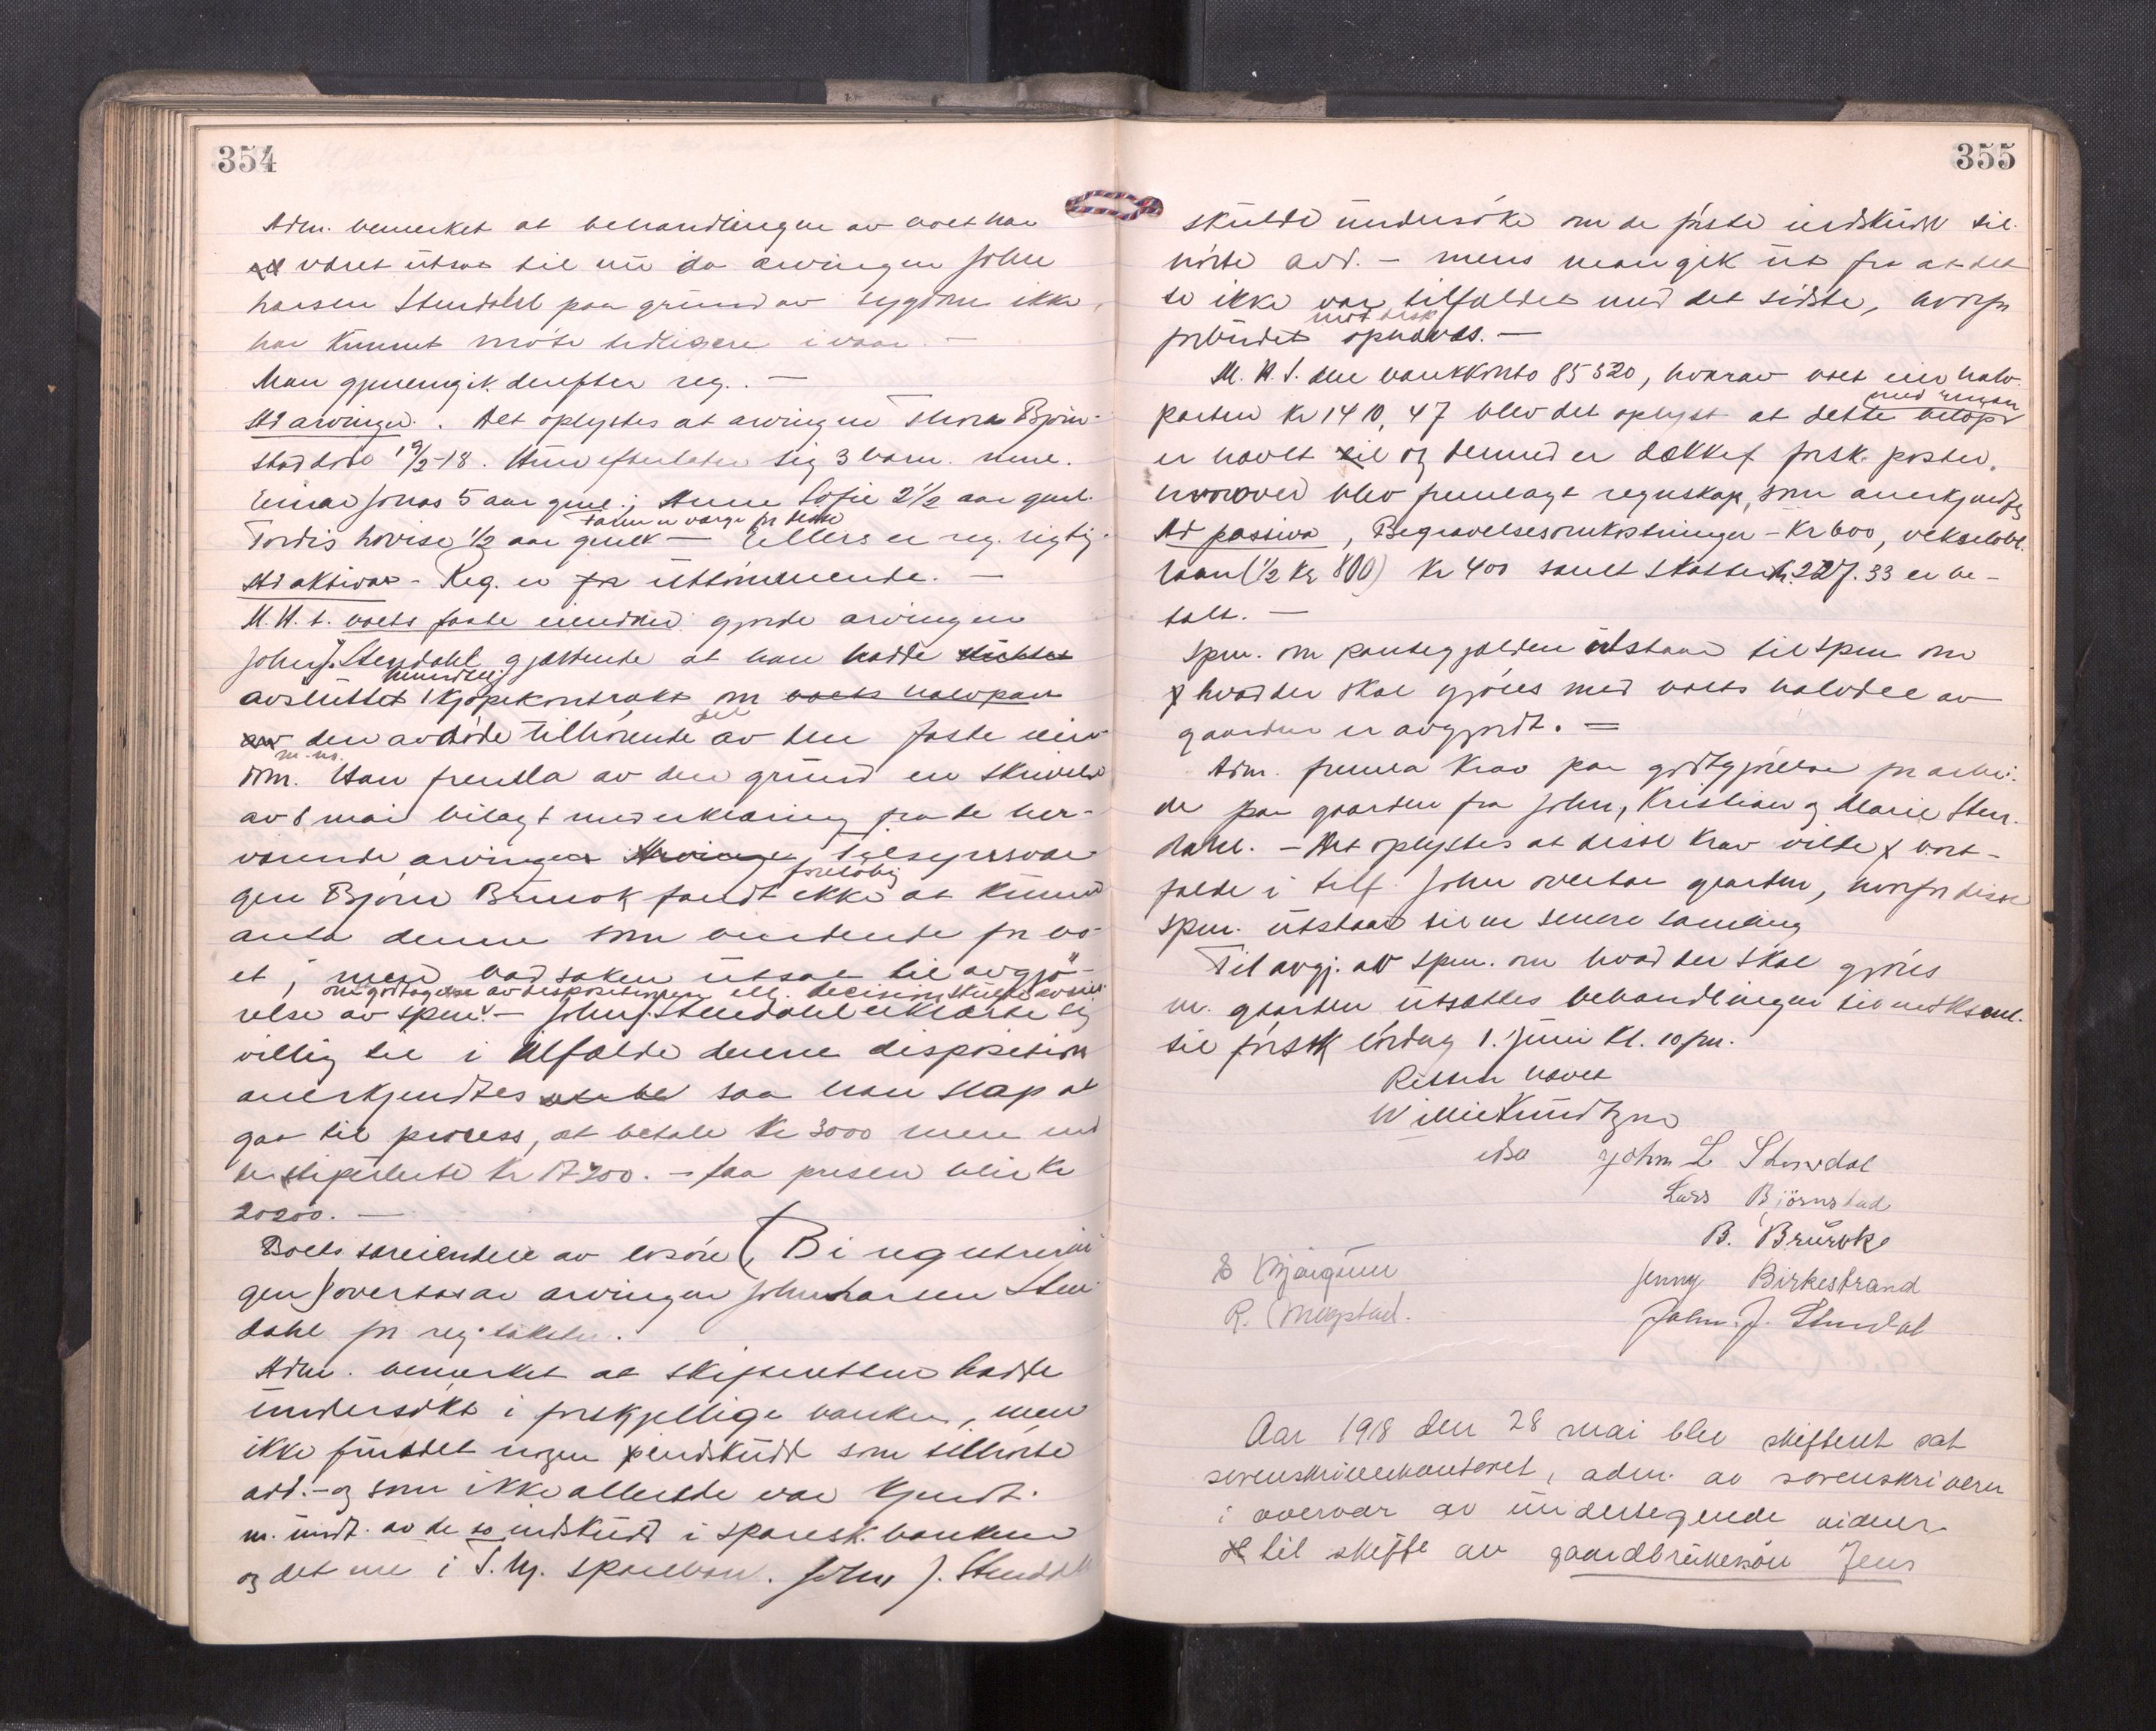 354
Adm. bemerket at behandlingen av boet har
været utsat til nu da arvingen John
Larsen Stendahl paa grund av sygdom ikke
har kunnet møte tidligere i vaar. —
Man gjennemgik derefter reg. —
Ad arvinger. Det oplystes at arvingen Thora Bjørn-
stad døde 19/2-18. Hun efterlater sig 3 barn. nml.
Einar Jonas 5 aar gml.; Anne Sofie 2½ aar gml.
Faren er værge for disse
Tordis Lovise ½ aar gmlk — Ellers er reg. rigtig.
Ad aktiva - Reg. er uttømmende. —
M. H. t. boets faste eiendom gjorde arvingen
John J. Stendahl gjældende at han hadde sluttet
mundtlig
avsluttet kjøpekontrakt om boets halvpart
del
av den avdøde tilhørende av den faste eien-
m. m.
dom. Han fremla av den grund en skrivelse
av 8 mai bilagt med erklæring fra de her-
værende arvinger Arvinge, tilsynsvær-
foreløbig
gen Bjørn Brurok fandt ikke at kunne
anta denne som bindende for bo-
et, men bad saken utsat til avgjø-
om godtagelse av disposisjonen ell. decision skulde
relse av spm. — John J. Stendahl erklærte sig
villig til i tilfælde denne disposition
anerkjendtes saa han slap at
gaa til process, at betale kr 3000 mere end
de stipulerte kr 17200. — saa prisen blir kr
20200. —
Boets sameiendele av løsøre (B i registrerin-
gen) overtas av arvingen John Larsen Sten-
dahl for reg. taksten.
Adm. bemerket at skifteretten hadde
undersøkt i forskjellige banker, men
ikke fundet nogen indskudd som tilhørte
avd. — og som ikke allerede var kjendt.
m. undt. av de to indskudd i sparesk. banken
og det ene i S. Hj. sparebank. John J. Stendahl
355
skulde undersøke om de første indskudd til-
hørte avd. — mens man gik ut fra at det
so ikke var tilfældet med det sidste, hvorfor
forbudet ophæves. —
M. H. t. den bankkonto 85320, hvorav boet eier halv-
med renter
parten kr 1410,47 blev det oplyst at dette beløp
er hævet og dermed er dækket forsk. poster,
hvorover blev fremlagt regnskap, som anerkjendtes
Ad passiva, Begravelsesomkostninger - kr 600, vekselobl.
laan (½ kr 800) kr 400 samt skatter kr. 227.33 er be-
talt. —
Spm. om pantegjælden utstaar til spm om
hvad der skal gjøres med boets halvdel av
gaarden er avgjordt. =
Adm. fremla krav paa godtgjørelse for arbei-
de paa gaarden fra John, Kristian og Marie Sten-
dahl. — Det oplystes at disse krav vilde bort-
falde i tilf. John overtar gaarden, hvorfor disse
spm. utstaar til en senere samling
Til avgj. av spm. om hvad der skal gjøres
m. gaarden utsættes behandlingen
til førstk lørdag 1. juni kl. 10 fm.
Retten hævet
Willie Knudtzon
John L Stendal
Lars Bjørnstad
B. Brurok
Jenny Birkestrand
John. J. Stendal
R. Megstad.
Aar 1918 den 28 mai blev skifteret sat
sorenskriverkontoret, adm. av sorenskriveren
i overvær av undertegnede vidner
til skifte av gaardbrukersøn Jens